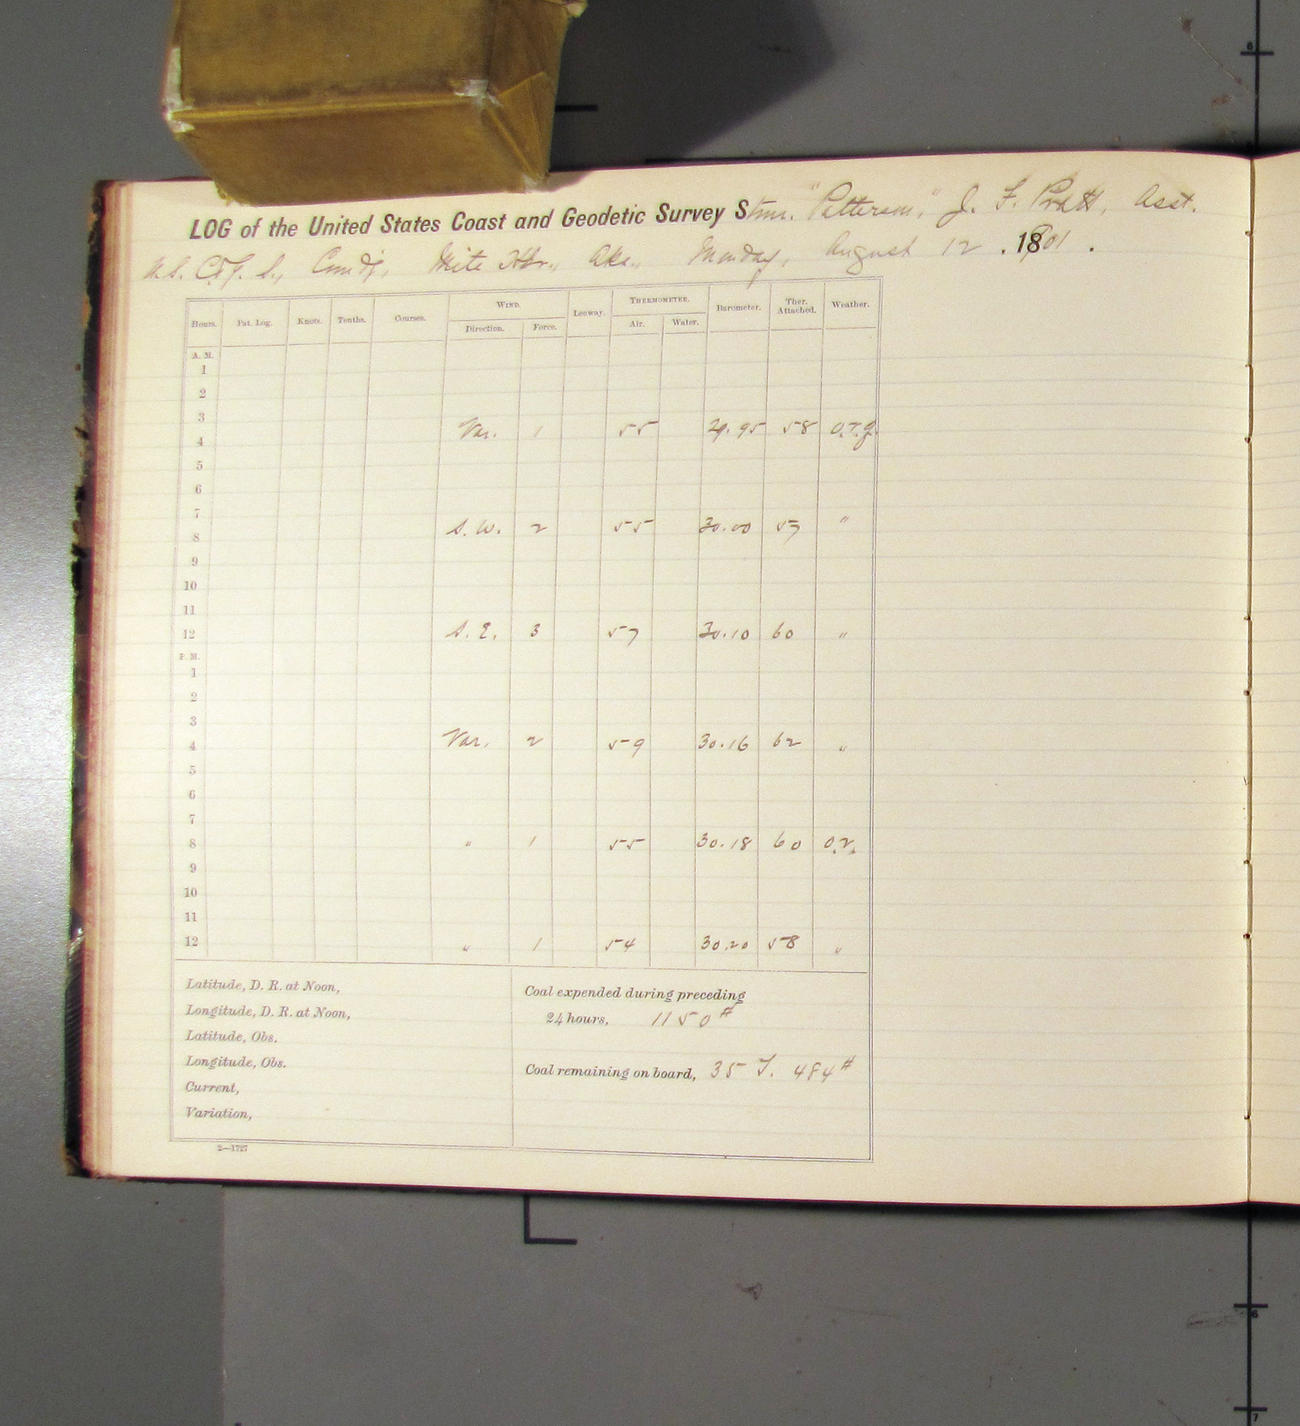 LOG of the United States Coast and Geodetic Survey Stmr. "Patterson," J. F. Pratt, Asst.
U.S. C. & G. S., Comd'g, Mite Hbr., Aka., Monday, August 12. 1901.
Hours. Pat. Log. Knots. Tenths. Courses. WIND. Leeway. THERMOMETER. Barometer. Ther. Attached. Weather.
Direction. Force. Air. Water.
A. M.
1
2
3
4 Var. 1 55 29.95 58
5
6
7
8 S.W. 2 55 30.00 57 "
9
10
11
12 S.E. 3 57 30.10 60 "
P. M.
1
2
3
4 Var. 2 59 30.16 62 "
5
6
7
8 " 1 55 30.18 60
9
10
11
12 " 1 54 30.20 58 "
Latitude, D. R. at Noon,
Longitude, D. R. at Noon,
Latitude, Obs.
Longitude, Obs.
Current,
Variation,
Coal expended during preceding
24 hours, 1150#
Coal remaining on board, 35 T. 484#
2—1727
6
6
7